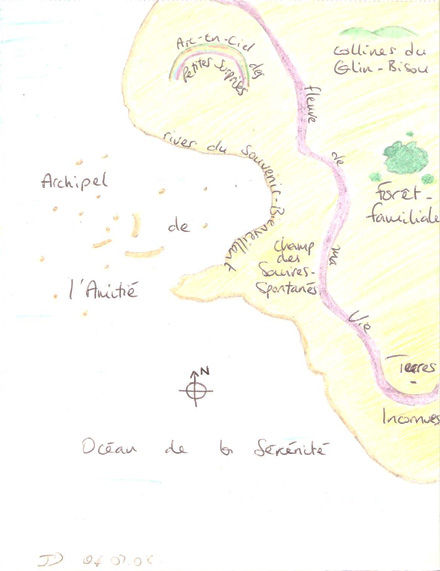 Arc-en-Ciel des
Petites Surprises
Collines du
Glin-Bisou
fleuve de ma Vie
river du Souvenir-Bienveillant
Archipel
de
l'Amitié
Forêt-
familiale
Champ
des
Sourires-
Spontanés
Terres
Inconnues
N
Océan de la Sérénité